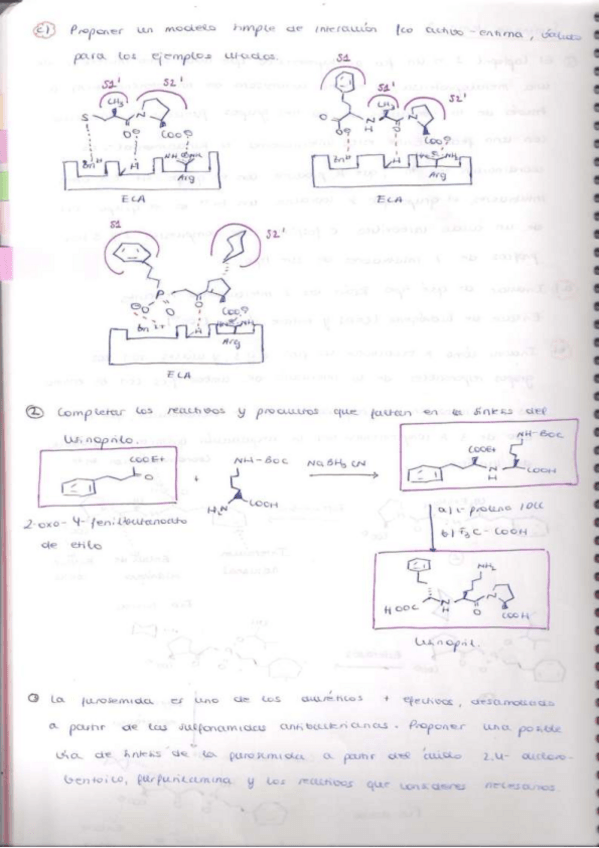 c) Proponer un modelo simple de interacción fco activo-enzima, válido
para los ejemplos citados.
S1
S1' S2'
CH3
S N
O COO⊖
Zn2+ H Arg
ECA
S1
S1' S2'
CH3
N
H
O
COO⊖
Zn2+ H Arg
ECA
S1 S2'
P N
O
COO⊖
Zn2+ H
Arg
ECA
2 Completar los reactivos y productos que faltan en la síntesis del
Lisinoprilo.
COOEt
O
+
NH-BOC
H2N COOH
NaBH3CN
NH-BOC
COOEt
N
H
COOH
2-oxo-4-fenilbutanoato
de etilo
a) L-prolina / DCC
b) F3C-COOH
NH2
HOOC N
H
O
N
COOH
Lisinopril.
La furosemida es uno de los diuréticos + efectivos, desarrollada
a partir de las sulfonamidas antibacterianas. Proponer una posible
vía de síntesis de la furosemida a partir del ácido 2,4-dicloro-
benzoico, furfurilamina y los reactivos que consideres necesarios.